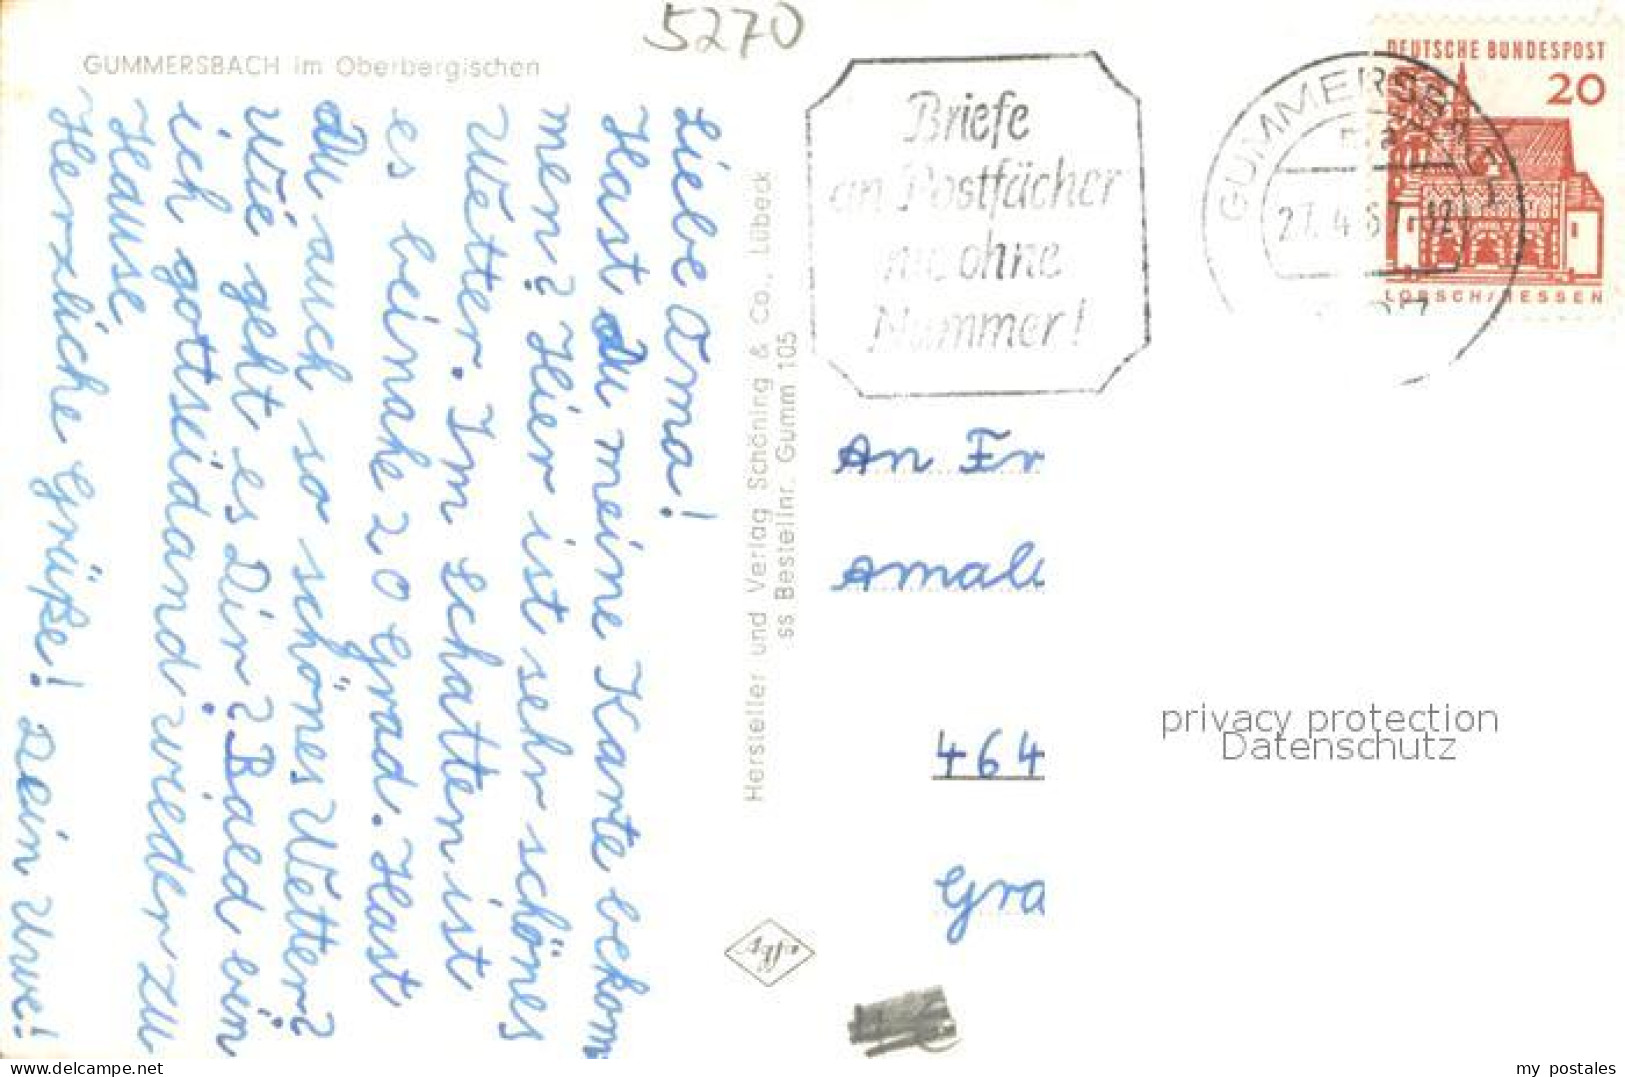 5270
GUMMERSBACH im Oberbergischen
Liebe Oma!
Hast Du meine Karte bekom
men? Hier ist sehr schönes
Wetter. Im Schatten ist
es beinahe 20 Grad. Hast
Du auch so schönes Wetter?
Wie geht es Dir? Bald bin
ich gottseidand wieder zu
Hause.
Herzliche Grüße! Dein Uwe!
Hersteller und Verlag Schöning & Co., Lübeck
ss Bestellnr. Gumm 105
Briefe
an Postfächer
nie ohne
Nummer!
GUMMERSBACH
27.4.67.12
DEUTSCHE BUNDESPOST
20
LORSCH/HESSEN
An Fr
Amali
464
Gra
privacy protection
Datenschutz
delcampe.net
my_postales